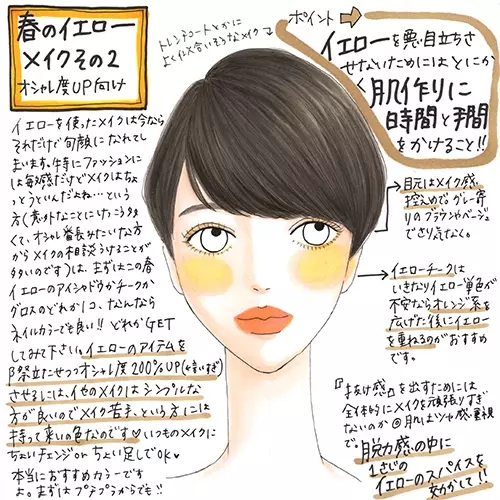 春のイエロー
メイクその2
オシャレ度UP向け
トレンチコートとかに
よく似合いそうなメイク
ポイント
イエローを悪目立ちさ
せないためにはとにか
く肌作りに
時間と手間
をかけること!!
イエローを使ったメイクは今なら
それだけで旬顔になれてし
まいます。特にファッションに
は敏感だけどメイクはちょ
っとうといんだよね…という
方(意外なことにけっこう多
くて、オシャレ番長みたいな方
からメイクの相談うけることが
多いのです)は、まずはこの春
イエローのアイシャドウかチークか
グロスのどれか1コ、なんなら
ネイルカラーでも良い!!どれかGET
してみて下さい。イエローのアイテムを
際立たせつつオシャレ度200%UP(←言いすぎ)
させるには、他のメイクはシンプルな
方が良いのでメイク苦手、という方には
持って来いの色なのです♡いつものメイクに
ちょいチェンジor ちょい足しでOK♡
本当におすすめカラーです
よ。まずはプチプラからでも!!
目元はメイク感
控えめで。グレー寄
りのブラウンやベージュ
でさり気なく。
イエローチークは
いきなりイエロー単色が
不安ならオレンジ系を
広げた後にイエロー
を重ねるのがおすすめ
です。
『抜け感』を出すためには
全体的にメイクを頑張りすぎ
ないのか◎肌はツヤ感重視
で。脱力感の中に
1さじの
イエローのスパイスを
効かして!!